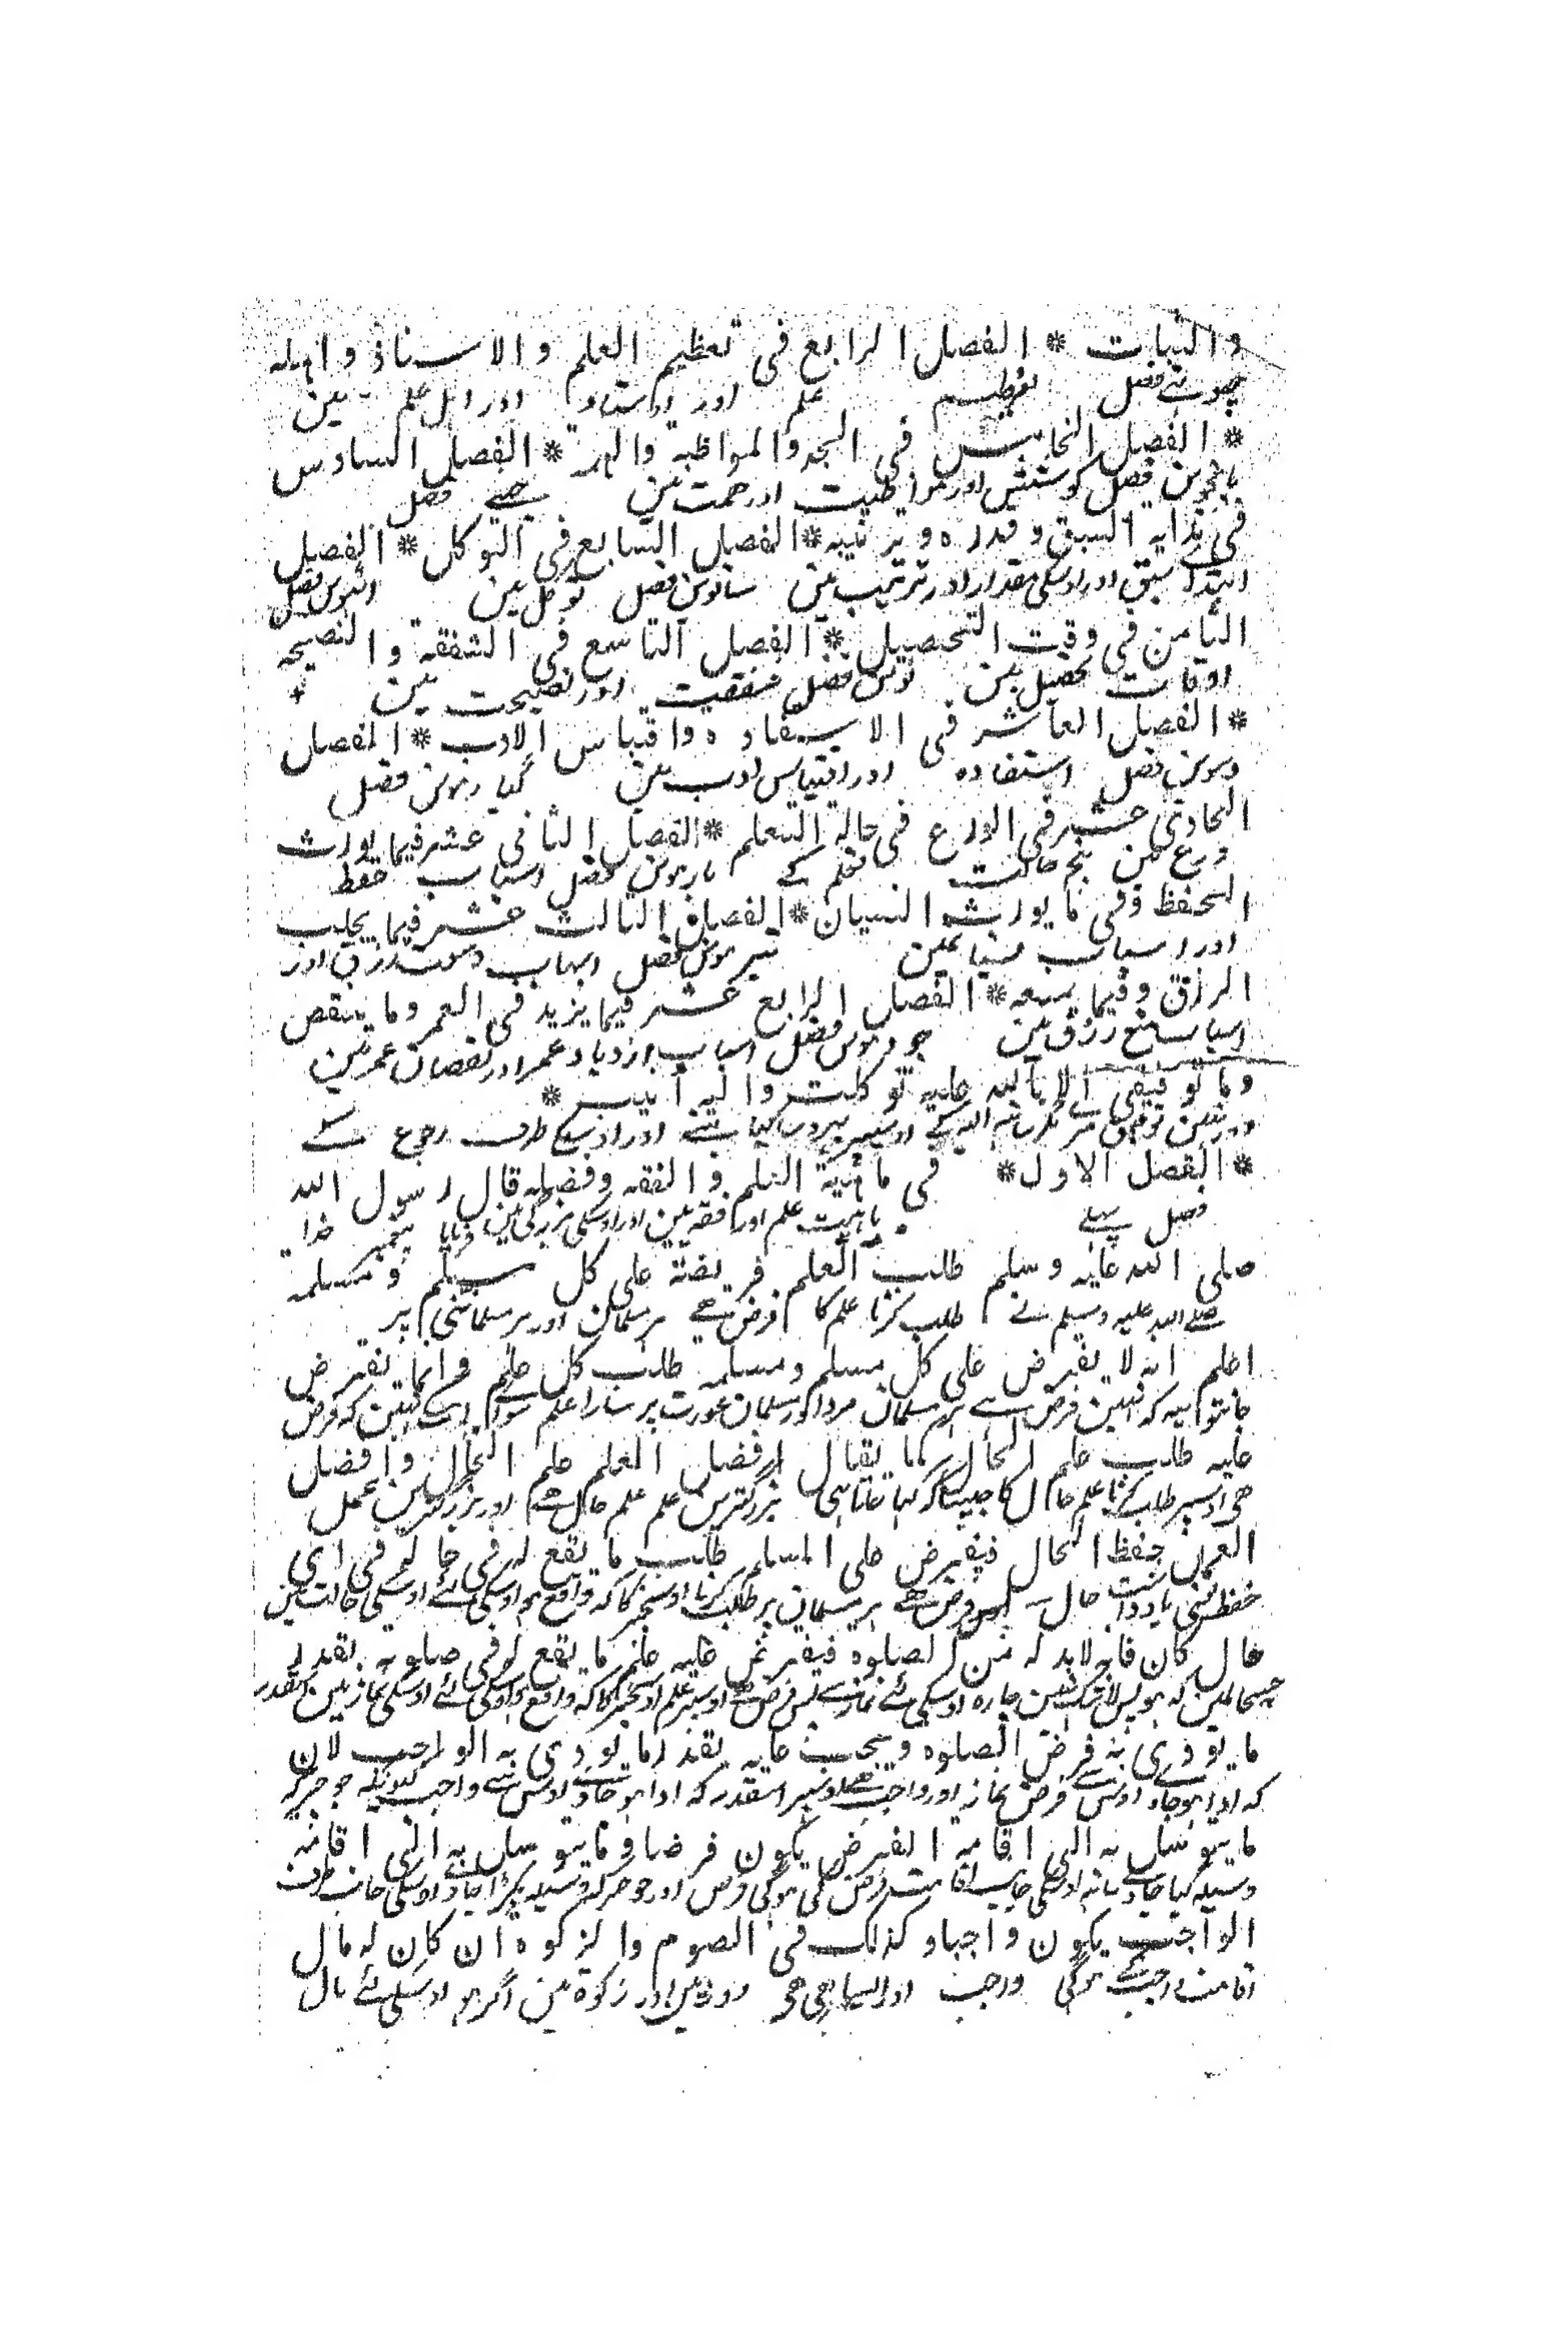 والثبات * الفصل الرابع في تعظيم العلم والاستاذ واهله
چوتھے فصل تعظیم علم اور اوستاد اور اہل علم مین
* الفصل الخامس في الجد والمواظبة والهمة * الفصل السادس
پانچوین فصل کوشش اور مواظبت اور همت مین چھٹے فصل
في بداية السبق وقدره وترتيبه * الفصل السابع في التوكل * الفصل
ابتداے سبق اور اوسکی مقدار اور ترتیب مین ساتوین فصل توکل مین آٹھوین فصل
الثامن في وقت التحصيل * الفصل التاسع في الشفقة والنصيحه
اوقات تحصیل مین نوین فصل شفقت اور نصیحت مین
* الفصل العاشر في الاستفاده واقتباس الادب * الفصل
دسوین فصل استفاده اور اقتباس ادب مین گیارہوین فصل
الحادي عشر في الورع في حالة التعلم * الفصل الثاني عشر فيما يورث
ورع مین بیچ حالت تعلم کے بارہوین فصل اسباب حفظ
الحفظ وفي ما يورث النسيان * الفصل الثالث عشر فيما يجلب
اور اسباب نسیا نمین تیرہوین فصل اسباب وسعت رزق اور
الرزق وفيما يمنعه * الفصل الرابع عشر فيما يزيد في العمر وما ينقص
اسباب منع رزق مین چودہوین فصل اسباب ازدیاد عمر اور نقصان عمر مین
وما توفيقي الا بالله عليه توكلت واليه انيب *
اور نہین توفیق میرے مگر ساتھ اللہ کے اوسپر بہروسا کیا مینے اور اوسیکے طرف رجوع کے
* الفصل الاول * في ماهية العلم والفقه وفضله قال رسول الله
فصل پہلے ماہیت علم اور فقہ مین اور اوسکی بزرگی مین فرمایا پیغمبر خدا
صلى الله عليه وسلم طلب العلم فريضة على كل مسلم ومسلمه
صلے اللہ علیہ وسلم نے طلب کرنا علم کا فرض هے ہر مسلمان اور ہر مسلماننی پر
اعلم انه لا يفترض على كل مسلم ومسلمه طلب كل علم وانما يفترض
جانتو یہ کہ نہین فرض هے ہر مسلمان مرد اور مسلمان عورت پر سارا علم سوا اسکے نہین کہ فرض
عليه طلب علم الحال كما يقال افضل العلم علم الحال وافضل
هی اوسپر طلب کرنا علم حال کا جیسا کہ کہا جاتا ہی بزرگترین علم علم حال هے اور بزرگترین عمل
العمل حفظ الحال فيفترض على المسلم طلب ما يقع له في حاله في اي
حفظ یعنی یادداشت حال پس فرض هے ہر مسلمان پر طلب کرنا اوسچیز کا کہ واقع ہو اوسکی لئے اوسکی حالت مین
حال كان فانه لابد له من الصلوه فيفترض عليه علم ما يقع له في صلوته بقدر
جسحالمین کہ ہو پس لاشک نہین چارہ اوسکی لئے نماز سے پس فرض هے اوسپر علم اوسچیز کا کہ واقع ہو اوسکی لئے اوسکی نماز مین اسقدر
ما يودي به فرض الصلوه ويجب عليه بقدر ما يودي به الواجب لان
کہ ادا ہو جاوے اوس سے فرض نماز اور واجب هے اوسپر اسقدر کہ ادا ہو جاوے اوس سے واجب کیونکہ جو چیز کہ
ما يتوسل به الى اقامة الفرض يكون فرضا وما يتوسل به الى اقامة
وسیلہ کیا جاوے ساتھ اوسکی جانب اقامت فرض کی ہوگی فرض اور جو چیز کہ وسیلہ پکڑا جاوے اوسکی جانب طرف
الواجب يكون واجبا وكذلك في الصوم والزكوه ان كان له مال
اقامت واجب کے ہوگی واجب اور ایسا ہی هی روزہ مین اور زکوۃ مین اگر ہو اوسکی لئے مال